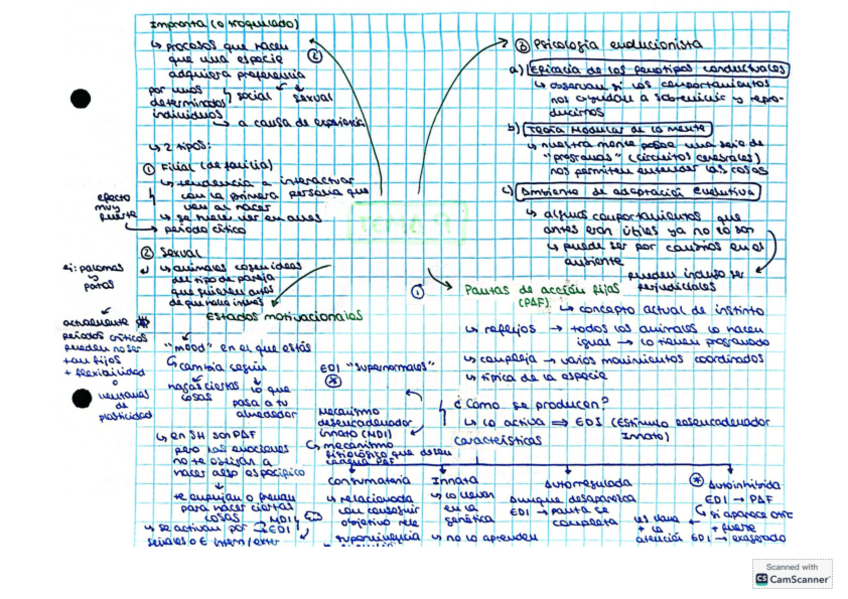 Impronta (o troquelado)
↳ procesos que hacen
que una especie
adquiera preferencia
②
por unos
determinados
individuos
social
sexual
↳ a causa de experiencia
↳ 2 tipos:
① Filial (de familia)
↳ tendencia a interactuar
con la primera persona que
ven al nacer
↳ se suele ver en aves
→ periodo crítico
efecto
muy
fuerte
② Sexual
↳ animales cogen ideas
del tipo de pareja
que quieren
ej: palomas
y
patos
actualmente
periodos críticos
pueden no ser
tan fijos
+ flexibilidad
o
ventanas
de
plasticidad
Estados motivacionales
"mood" en el que estás
↳ cambia según
hagas ciertas
cosas
lo que
pasa a tu
alrededor
↳ en SH son PAF
pero las emociones
no te obligan a
hacer algo específico
te empujan o
para hacer ciertas
cosas
MDI
↳ se activan por → EDI
señales o E intern/exter
③ Psicología evolucionista
a) Eficacia de los fenotipos conductuales
↳ observan si los comportamientos
nos ayudan a sobrevivir y repro-
ducirnos
b) Teoría Modular de la mente
↳ nuestra mente posee una serie de
"programas" (circuitos cerebrales)
nos permiten entender las cosas
c) Ambiente de adaptación evolutiva
↳ algunos comportamientos que
antes eran útiles ya no lo son
↳ puede ser por cambios en el
ambiente
pueden incluso ser
perjudiciales
① Pautas de acción fijas
(PAF)
↳ concepto actual de instinto
↳ reflejos → todos los animales lo hacen
igual → lo tienen programado
↳ compleja → varios movimientos coordinados
↳ típica de la especie
¿Cómo se producen?
↳ lo activa ⇒ EDI (Estímulo desencadenador
Innato)
EDI "supernormales"
*
Mecanismo
desencadenador
innato (MDI)
↳ mecanismo
fisiológico que
PAF
características
Consumatoria
↳ relacionada
con conseguir
objetivo
supervivencia
Innata
↳ lo llevan
en la
genética
↳ no lo aprenden
Autorregulada
Aunque desaparezca
EDI → pauta se
completa
* Autoinhibida
EDI → PAF
↳ si aparece otro
+ fuerte
+ la
atención
EDI → exagerado
Scanned with
CS CamScanner